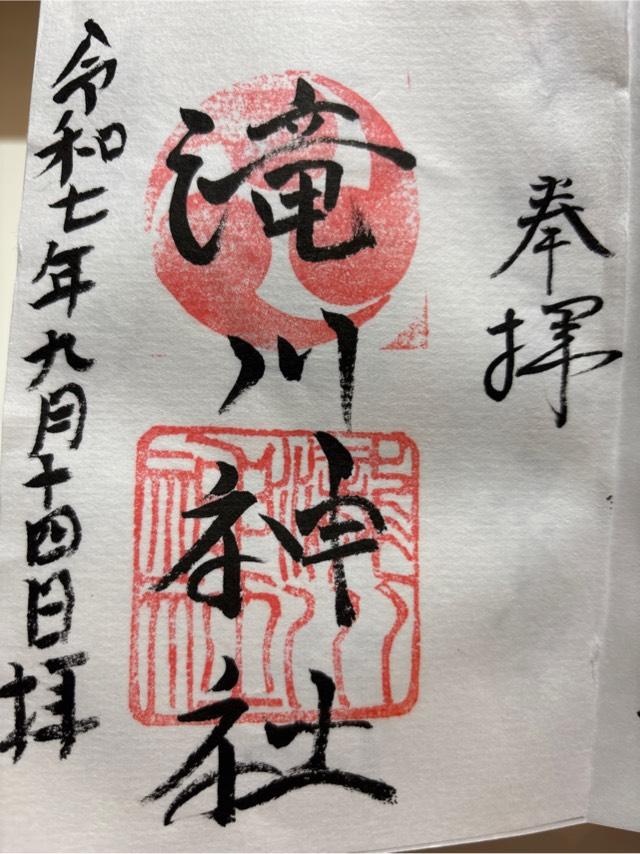 奉拝
滝川神社
令和七年九月十四日拝